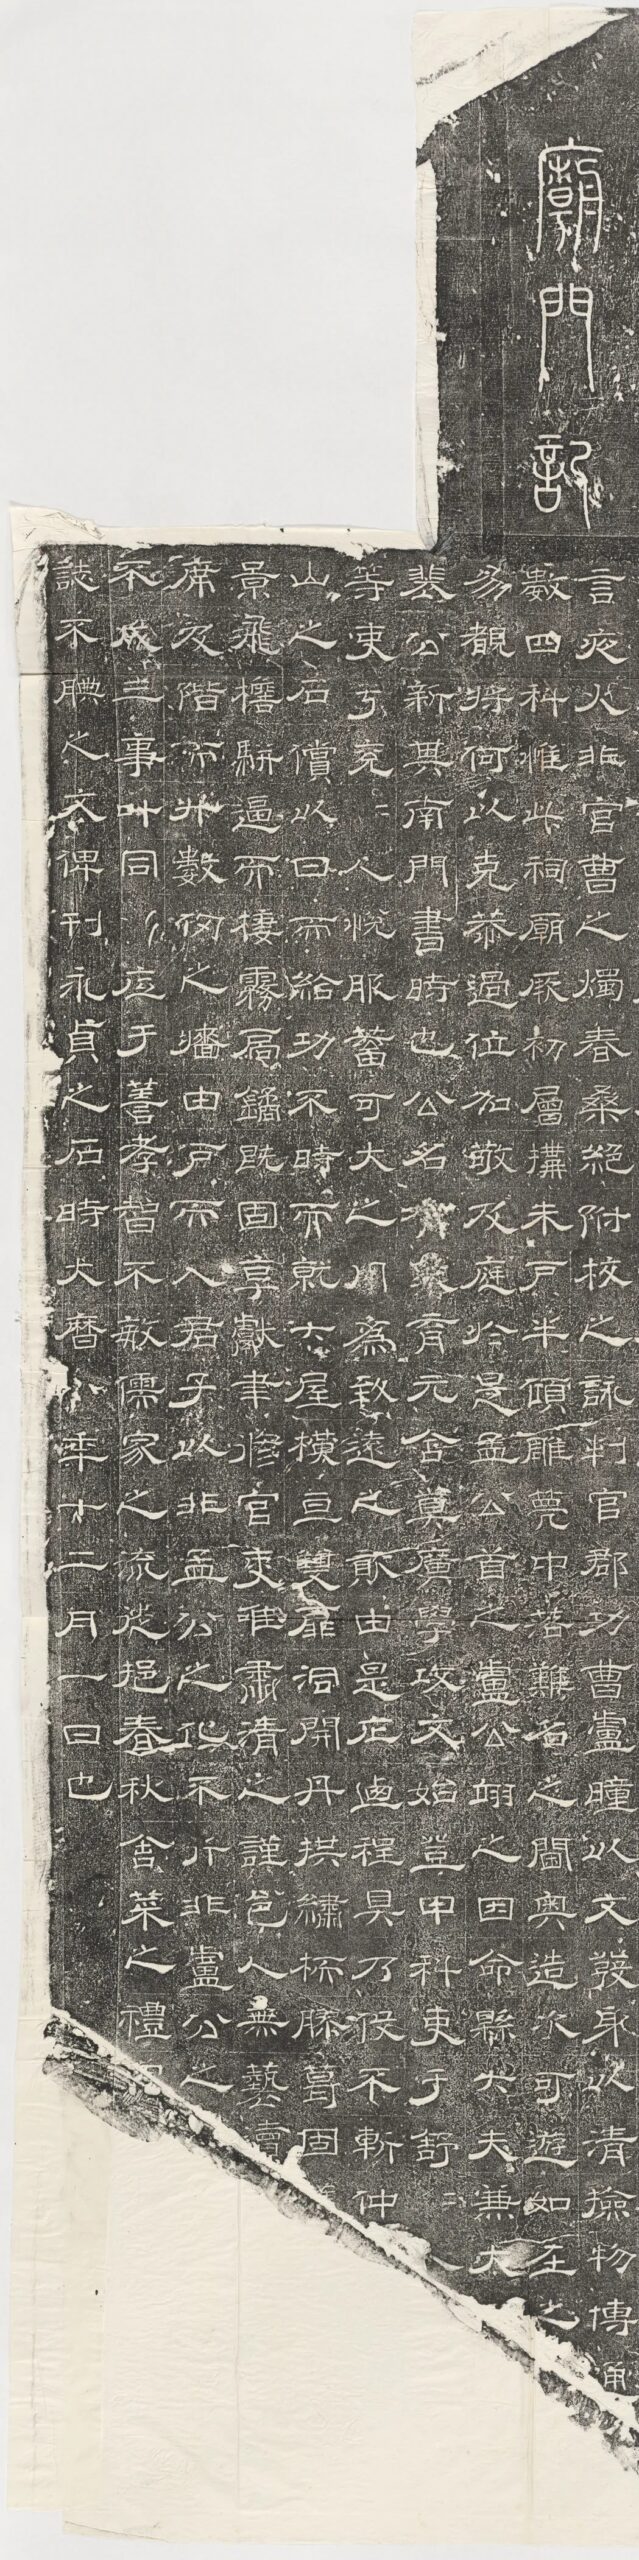 廟門記
言夜火非官曹之燭春桑絕附枝之詠判官郡功曹盧瞳以文發身以清撿物博通
數四科惟此祠廟厥初層構朱戶半頃雕甍中落難名之閫奧造次可遊如在之
易覩將何以克恭過位加敬及庭於是孟公首之盧公翊之因命縣大夫兼大
裴公新其南門書時也公名育元含真廣學攻文始登甲科吏于舒二
等吏亏兗人悅服蓄可大之用為致遠之敵由是庀徒程具乃俟不斬仲
山之石償以日而給功不時而就大屋橫亘雙扉洞開丹拱繡栭勝葛固
景飛櫩駢逼而棲霧扃鐍既固享獻聿修官吏唯肅清之謹邑人無藝
席及階而升數仞之牆由戶而入君子以非孟公之化不行非盧公之
不成三事叶同應于善孝智不敏儒家之流從挹春秋舍菜之禮
誌不腆之文俾刊永貞之石時大曆八年十二月一日也